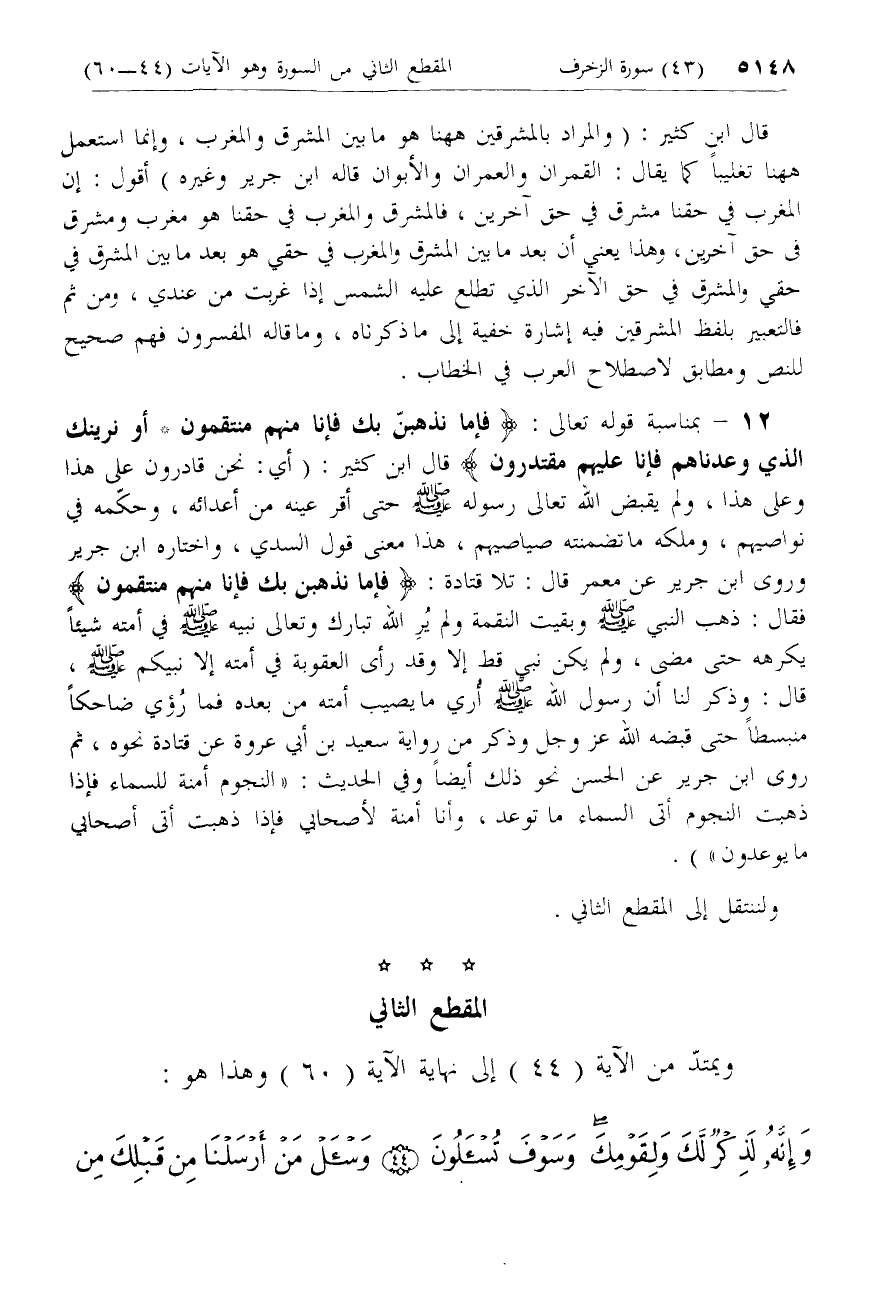 ٥١٤٨ (٤٣) سورة الزخرف المقطع الثاني من السورة وهو الآيات (٤٤—٦٠)
قال ابن كثير : ( والمراد بالمشرقين ههنا هو مابين المشرق والمغرب ، وإنما استعمل
ههنا تغليباً كما يقال : القمران والعمران والأبوان قاله ابن جرير وغيره ) أقول : إن
المغرب في حقنا مشرق في حق آخرين ، فالمشرق والمغرب في حقنا هو مغرب ومشرق
فى حق آخرين، وهذا يعني أن بعد مابين المشرق والمغرب في حقي هو بعد مابين المشرق في
حقي والمشرق في حق الآخر الذي تطلع عليه الشمس إذا غربت من عندي ، ومن ثم
فالتعبير بلفظ المشرقين فيه إشارة خفية إلى ماذكرناه ، وماقاله المفسرون فهم صحيح
للنص ومطابق لاصطلاح العرب في الخطاب .
١٢ – بمناسبة قوله تعالى : ﴿ فإما نذهبنّ بك فإنا منهم منتقمون * أو نرينك
الذي وعدناهم فإنا عليهم مقتدرون ﴾ قال ابن كثير : ( أي: نحن قادرون على هذا
وعلى هذا ، ولم يقبض الله تعالى رسوله ﷺ حتى أقر عينه من أعدائه ، وحكّمه في
نواصيهم ، وملكه ماتضمنته صياصيهم ، هذا معنى قول السدي ، واختاره ابن جرير
وروى ابن جرير عن معمر قال : تلا قتادة : ﴿ فإما نذهبن بك فإنا منهم منتقمون ﴾
فقال : ذهب النبي ﷺ وبقيت النقمة ولم يُرِ الله تبارك وتعالى نبيه ﷺ في أمته شيئاً
يكرهه حتى مضى ، ولم يكن نبي قط إلا وقد رأى العقوبة في أمته إلا نبيكم ﷺ ،
قال : وذكر لنا أن رسول الله ﷺ أُري مايصيب أمته من بعده فما رُؤي ضاحكاً
منبسطاً حتى قبضه الله عز وجل وذكر من رواية سعيد بن أبي عروة عن قتادة نحوه ، ثم
روى ابن جرير عن الحسن نحو ذلك أيضاً وفي الحديث : « النجوم أمنة للسماء فإذا
ذهبت النجوم أتى السماء ما توعد ، وأنا أمنة لأصحابي فإذا ذهبت أتى أصحابي
مايوعدون » ) .
ولننتقل إلى المقطع الثاني .
☆ ☆ ☆
المقطع الثاني
ويمتدّ من الآية ( ٤٤ ) إلى نهاية الآية ( ٦٠ ) وهذا هو :
وَإِنَّهُۥ لَذِكْرٌ لَّكَ وَلِقَوْمِكَ ۖ وَسَوْفَ تُسْـَٔلُونَ ۝٤٤ وَسْـَٔلْ مَنْ أَرْسَلْنَا مِن قَبْلِكَ مِن